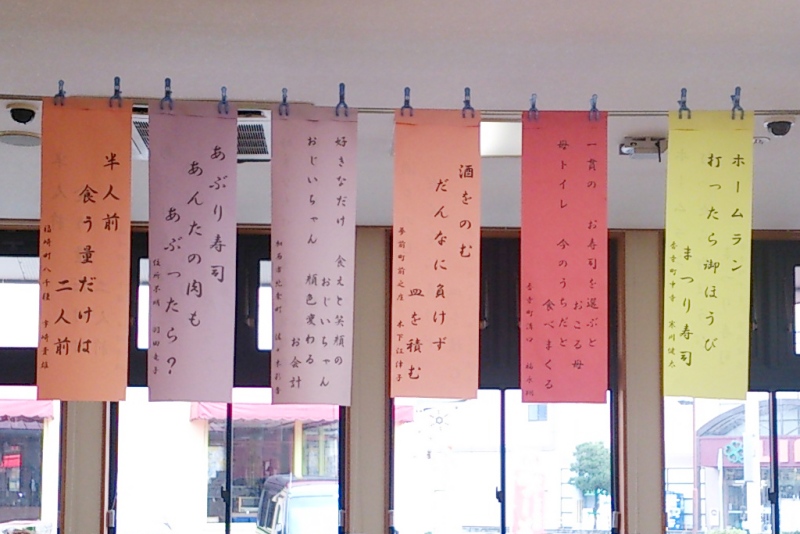 ホームラン
打ったら御ほうび
まつり寿司
香寺町中寺
一貫の お寿司を選ぶと
おこる母
母トイレ 今のうちだと
食べまくる
香寺町溝口
酒をのむ
だんなに負けず
皿を積む
夢前町前之庄 木下江津子
好きなだけ 食えと笑顔の
おじいちゃん
おじいちゃん 顔色変わる
お会計
あぶり寿司
あんたの肉も
あぶったら？
住所不明
半人前
食う量だけは
二人前
福崎町八千種